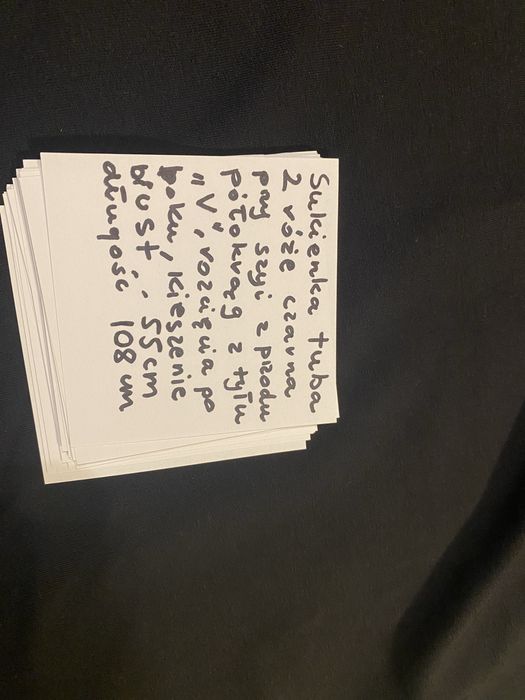 Sukienka tuba
2 róże czarna
pry szyi z przodu
półokrąg z tyłu
"V", rozcięcia po
boku, kieszenie
biust. 55cm
długość 108 cm